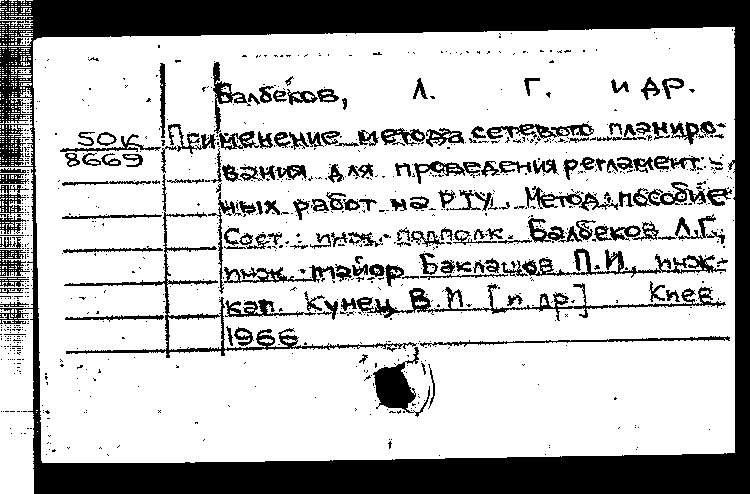 Балбеков, Л. Г. и др.
50к Применение метода сетевого планиро-
8669 вания для проведения регламент-
ных работ на РТУ. Метод. пособие
Сост.: инж.-подполк. Балбеков Л.Г.,
инж.-майор Баклашов П.И., инж.-
кап. Кунец В.И. [и др.] Киев
1966.